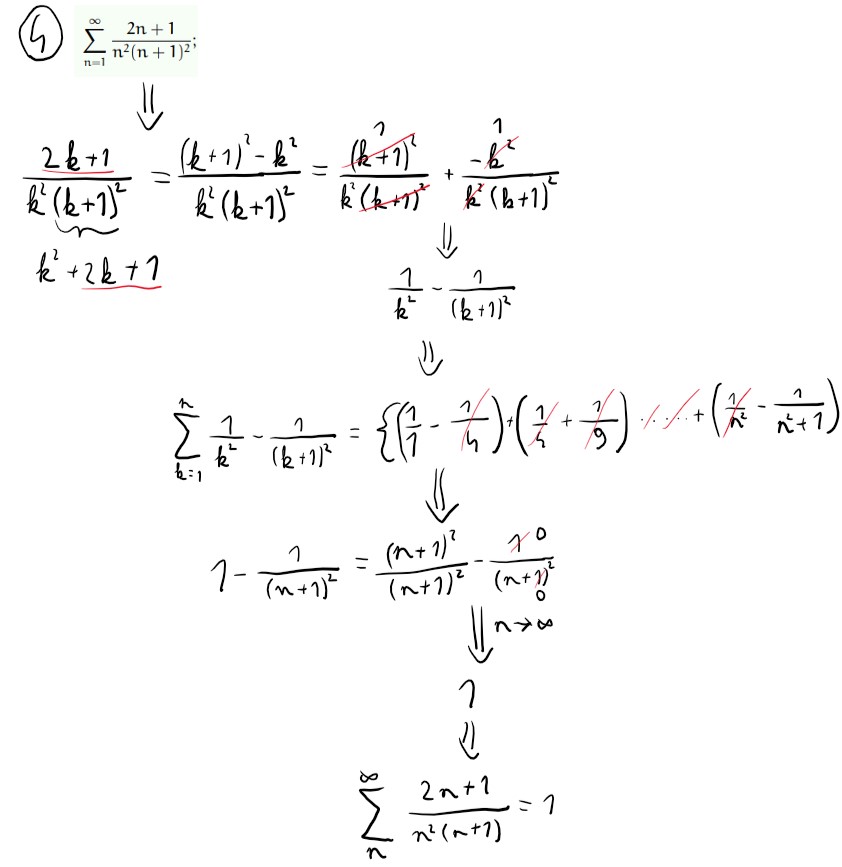 4) \sum_{n=1}^{\infty} \frac{2n+1}{n^2(n+1)^2};
⇓
\frac{2k+1}{k^2(k+1)^2} = \frac{(k+1)^2-k^2}{k^2(k+1)^2} = \frac{(k+1)^2}{k^2(k+1)^2} + \frac{-k^2}{k^2(k+1)^2}
1 1
k^2+2k+1
⇓
\frac{1}{k^2} - \frac{1}{(k+1)^2}
⇓
\sum_{k=1}^{n} \frac{1}{k^2} - \frac{1}{(k+1)^2} = \{(\frac{1}{1} - \frac{1}{4}) + (\frac{1}{4} + \frac{1}{9}) ..... + (\frac{1}{n^2} - \frac{1}{n^2+1})
⇓
1 - \frac{1}{(n+1)^2} = \frac{(n+1)^2}{(n+1)^2} - \frac{1}{(n+1)^2}
0 0
⇓ n→∞
1
⇓
\sum_{n}^{\infty} \frac{2n+1}{n^2(n+1)} = 1